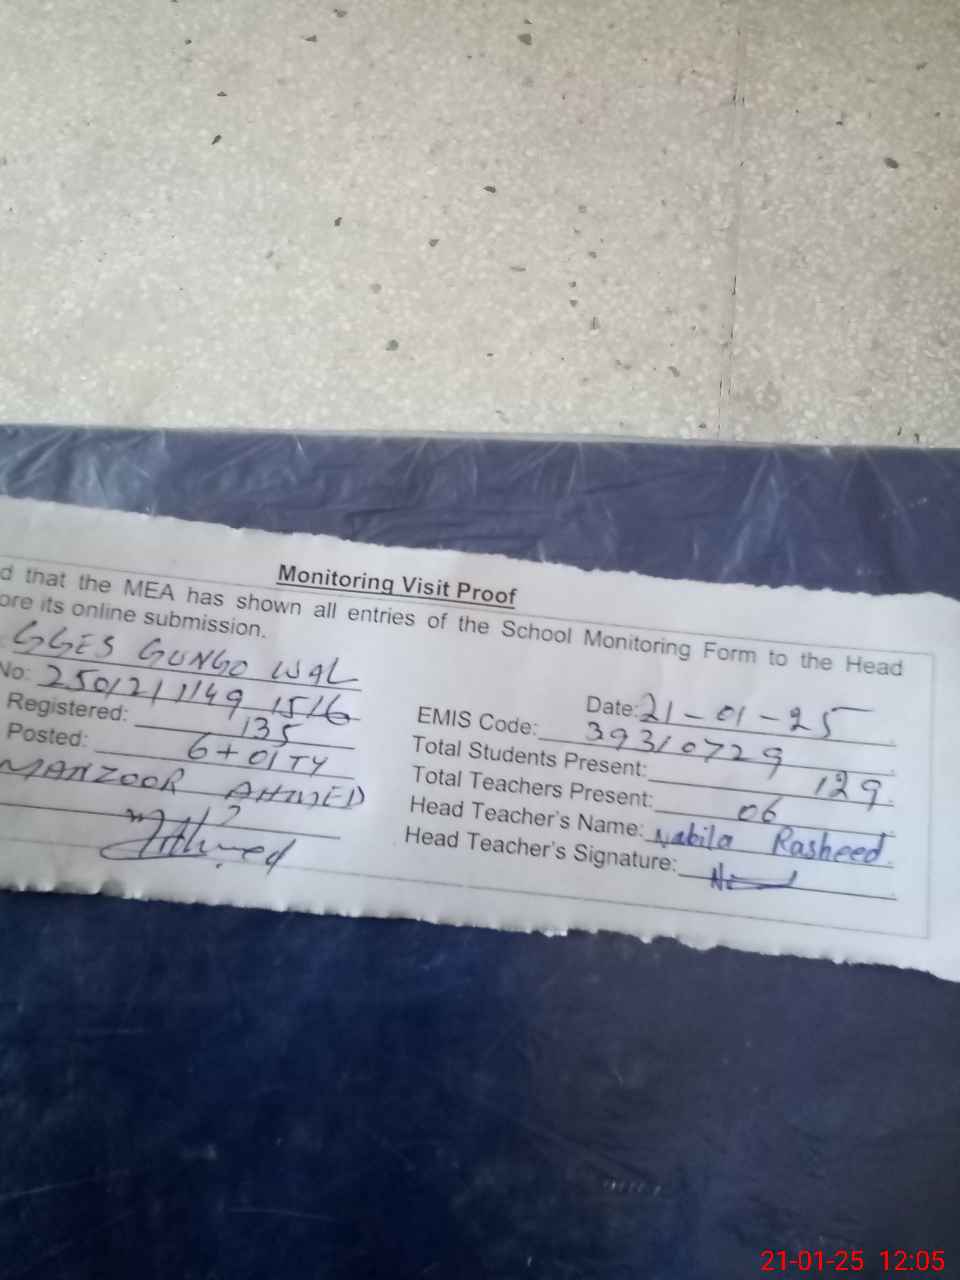 Monitoring Visit Proof
d that the MEA has shown all entries of the School Monitoring Form to the Head
ore its online submission.
GGES GUNGO WAL
Date: 21-01-25
No: 250121114915 16
EMIS Code: 39310729
Registered: 135
Total Students Present: 129
Posted: 6+01TY
Total Teachers Present: 06
MANZOOR AHMED
Head Teacher's Name: Nabila Rasheed
Head Teacher's Signature:
21-01-25 12:05